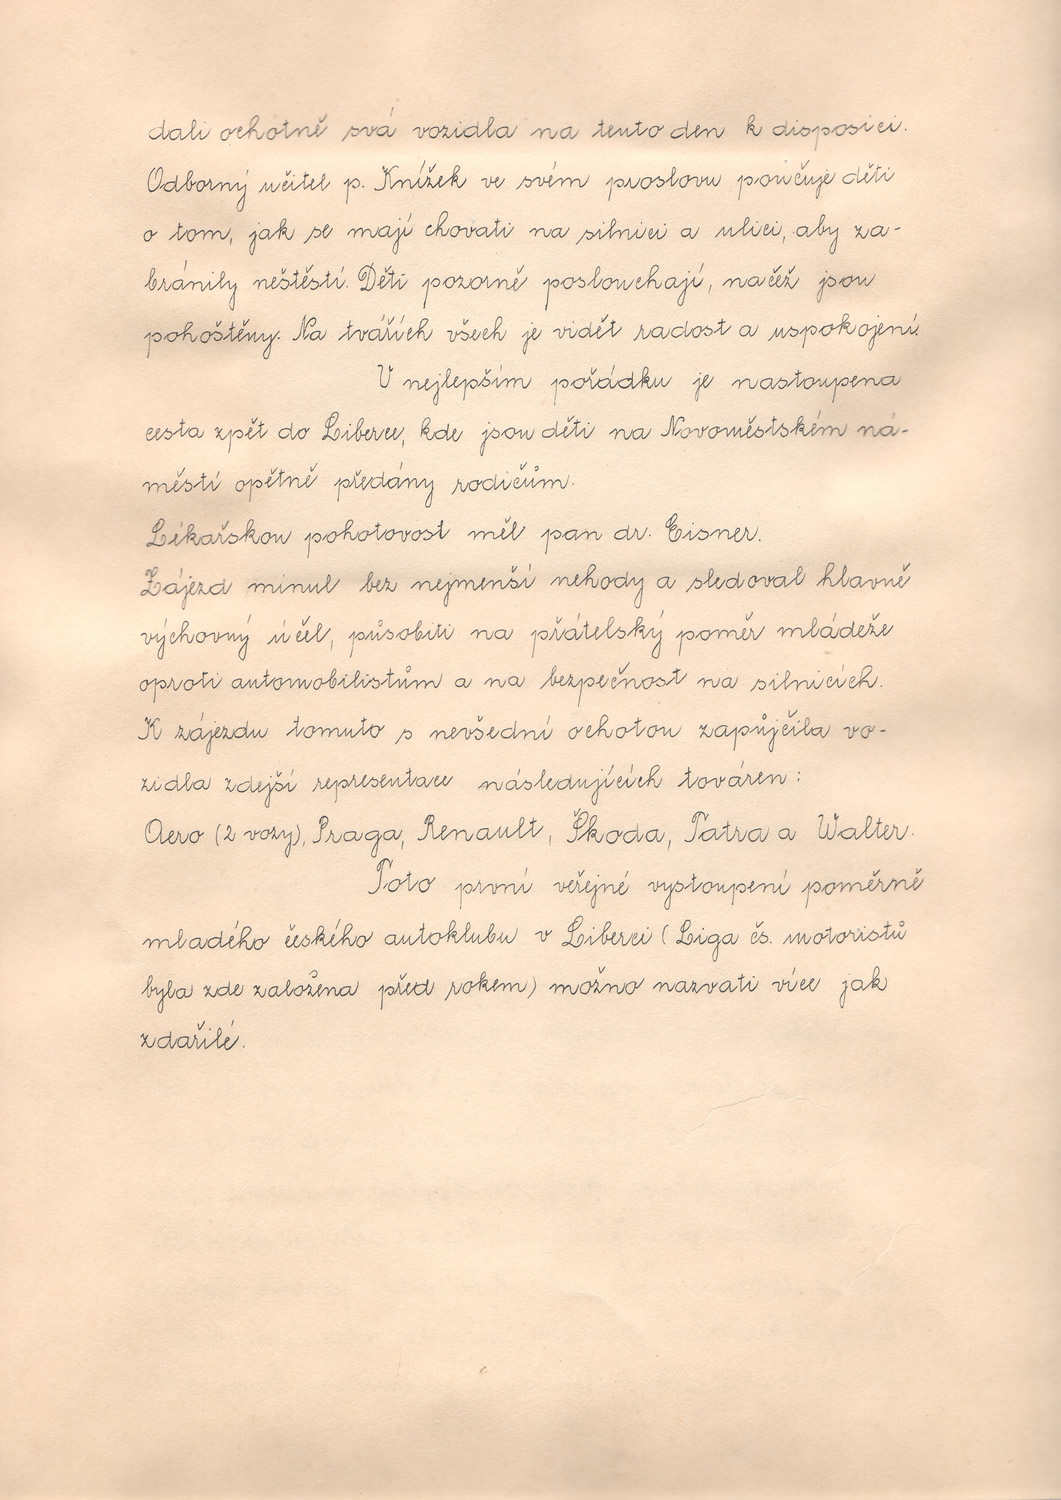 dali ochotně svá vozidla na tento den k disposici.
Odborný učitel p. Knížek ve svém proslovu poučuje děti
o tom, jak se mají chovati na silnici a ulici, aby za-
bránily neštěstí. Děti pozorně poslouchají, načěž jsou
pohoštěny. Na tvářích všech je vidět radost a uspokojení.
V nejlepším pořádku je nastoupena
cesta zpět do Liberce, kde jsou děti na Novoměstském ná-
městí opětně předány rodičům.
Lékařskou pohotovost měl pan dr. Eisner.
Zájezd minul bez nejmenší nehody a sledoval hlavně
výchovný účel, působiti na přátelský poměr mládeže
oproti automobilistům a na bezpečnost na silnicích.
K zájezdu tomuto s nevšední ochotou zapůjčila vo-
zidla zdejší representace následujících továren:
Aero (2 vozy), Praga, Renault, Škoda, Tatra a Walter.
Toto první veřejné vystoupení poměrně
mladého českého autoklubu v Liberci (Liga čs. motoristů
byla zde založena před rokem) možno nazvati více jak
zdařilé.